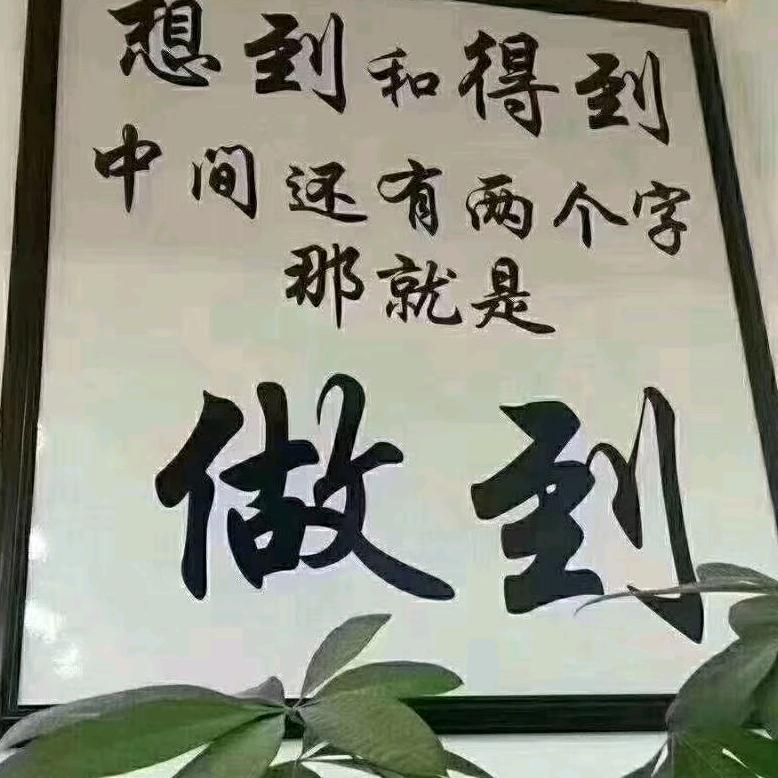 想到和得到
中间还有两个字
那就是
做到